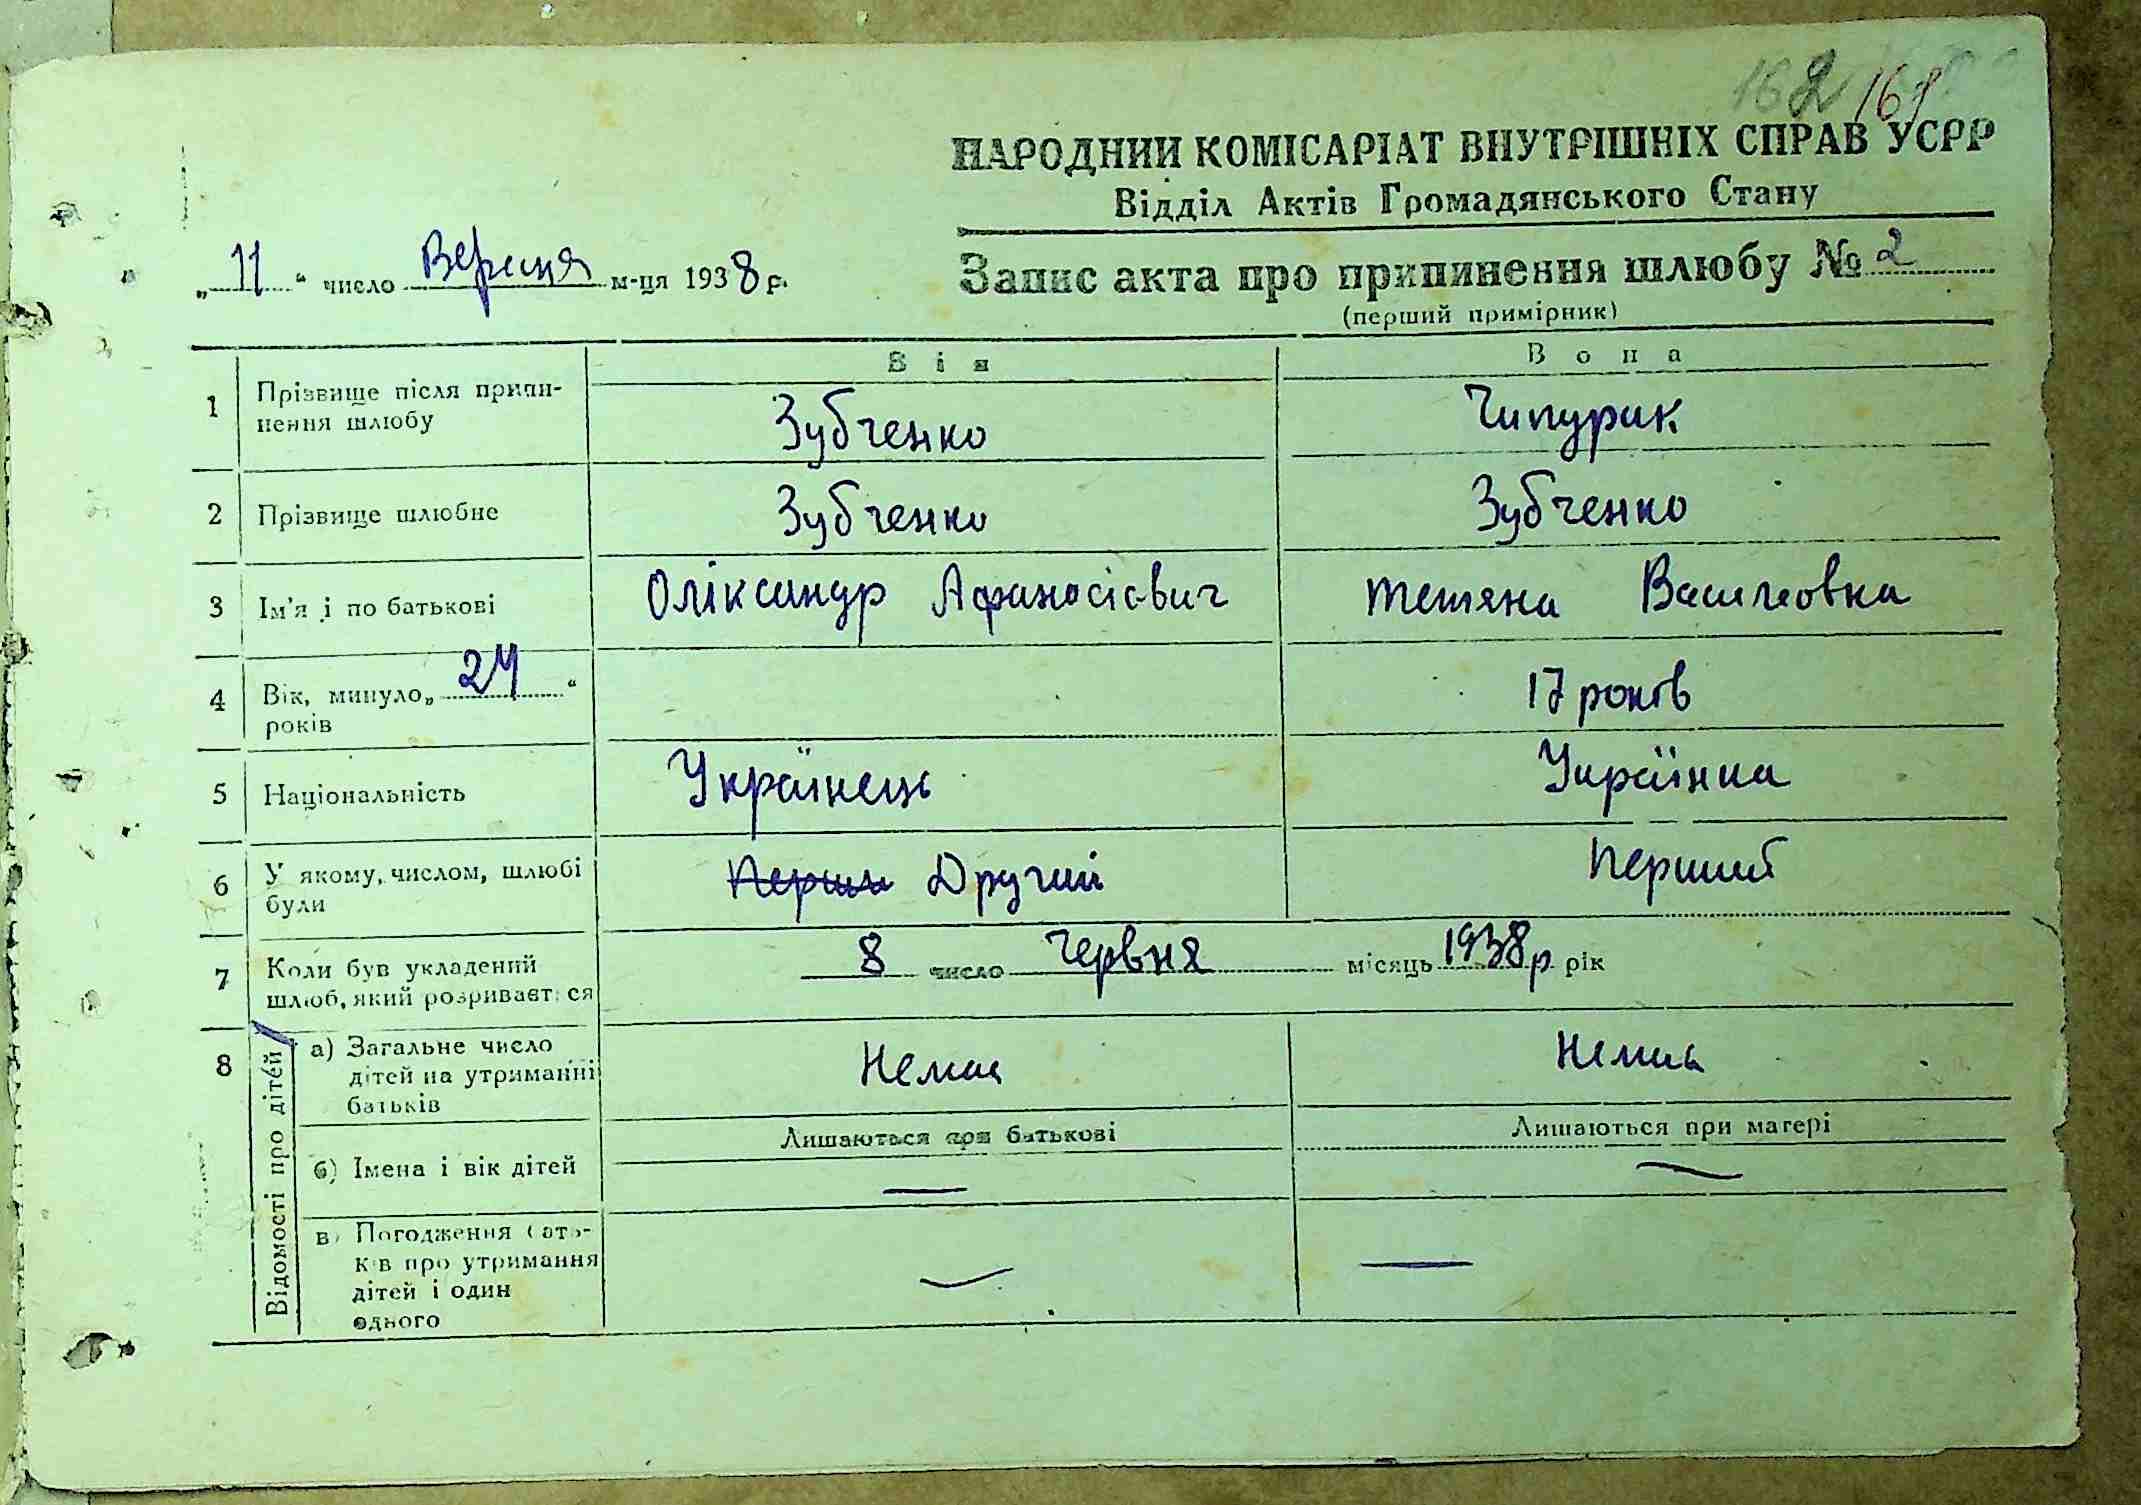 162 161
НАРОДНИЙ КОМІСАРІАТ ВНУТРІШНІХ СПРАВ УСРР
Відділ Актів Громадянського Стану
„11“ число Верисця м-ця 1938 р.
Запис акта про припинення шлюбу № 2
(перший примірник)
Він Вона
1 Прізвище після припи-
нення шлюбу Зубченко Чипурик
2 Прізвище шлюбне Зубченко Зубченко
3 Ім'я і по батькові Оліксандр Афанасієвич Тетяна Василовна
4 Вік, минуло „24“
років 17 років
5 Національність Українець Українка
6 У якому, числом, шлюбі
були Перший Другий Перший
7 Коли був укладений
шлюб, який розривається 8 число Червня місяць 1938 р. рік
8 Відомості про дітей
а) Загальне число
дітей на утриманні
батьків Немає Немає
Лишаються при батькові Лишаються при матері
б) Імена і вік дітей — —
в) Погодження бать-
ків про утримання
дітей і один
одного — —